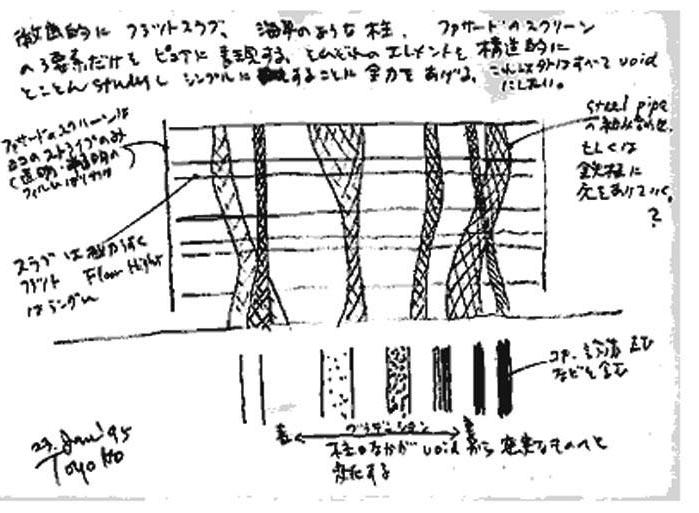 徹底的に フラットスラブ、海草のような柱、ファサードのスクリーン
の3要素だけを ピュアに 表現する。それぞれのエレメントを 構造的に
とことん studyし シンプルに することに 全力を あげる。これ以外はすべて void
にしたい。
ファサードのスクリーンは
ヨコのストライプのみ
フィルムはり
スラブは 極力うすく
フラット Floor Hight
はランダム
steel pipe
の
もしくは
鉄板に
穴をあけていく。
?
コア、設備
などを含む
グラデーション
柱のなかが void から 充実なものへと
変化する
23. Jan. '95
Toyo Ito